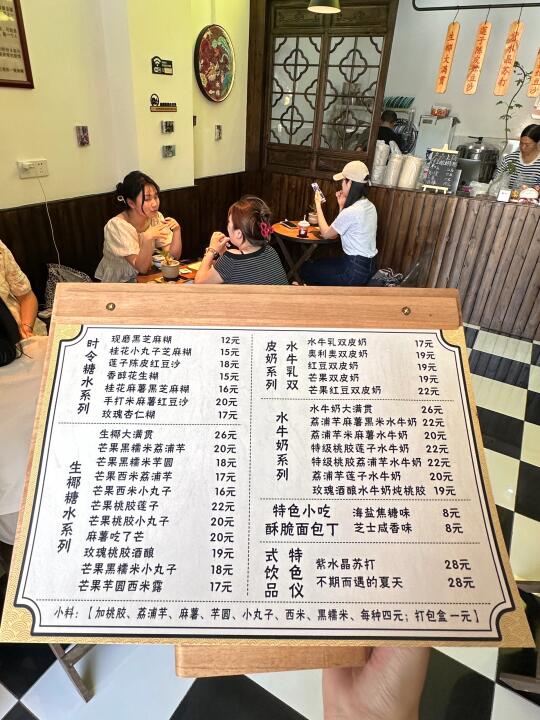 生椰大满贯
莲子陈皮红豆沙
紫水晶苏打
时令糖水系列
现磨黑芝麻糊 12元
桂花小丸子芝麻糊 15元
莲子陈皮红豆沙 18元
香醇花生糊 15元
桂花麻薯黑芝麻糊 16元
手打米麻薯红豆沙 20元
玫瑰杏仁糊 17元
生椰糖水系列
生椰大满贯 26元
芒果黑糯米荔浦芋 20元
芒果黑糯米芋圆 18元
芒果西米荔浦芋 17元
芒果西米小丸子 16元
芒果桃胶莲子 22元
芒果桃胶小丸子 20元
麻薯吃了芒 20元
玫瑰桃胶酒酿 19元
芒果黑糯米小丸子 18元
芒果芋圆西米露 17元
水牛乳双皮奶系列
水牛乳双皮奶 17元
奥利奥双皮奶 19元
红豆双皮奶 19元
芒果双皮奶 19元
芒果红豆双皮奶 22元
水牛奶系列
水牛奶大满贯 26元
荔浦芋麻薯黑米水牛奶 22元
荔浦芋米麻薯水牛奶 20元
特级桃胶莲子水牛奶 22元
特级桃胶荔浦芋水牛奶 22元
荔浦芋莲子水牛奶 20元
玫瑰酒酿水牛奶炖桃胶 19元
特色小吃
酥脆面包丁
海盐焦糖味 8元
芝士咸香味 8元
特色仪式饮品
紫水晶苏打 28元
不期而遇的夏天 28元
小料:【加桃胶、荔浦芋、麻薯、芋圆、小丸子、西米、黑糯米、每种四元；打包盒一元】